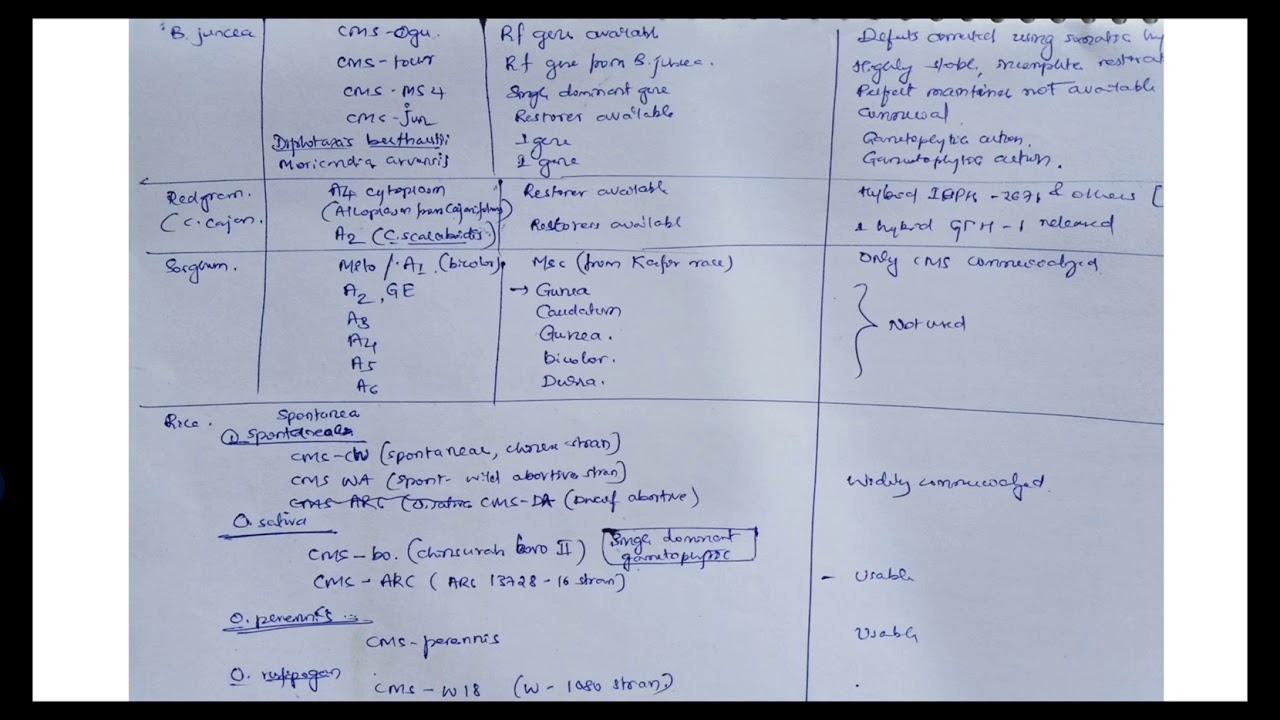 B. juncea CMS-Ogu. Rf gene available Defects corrected using somatic hy
CMS-tour Rf gene from B. juncea. Highly stable, incomplete restorat
CMS-MS4 Single dominant gene Perfect maintainer not available
CMS-jun Restorer available
Diplotaxis berthautii 1 gene Gametophytic action.
Moricandia arvensis 1 gene Gametophytic action.
Redgram. A4 cytoplasm Restorer available Hybrid & others [
(C. Cajan. (Alloplasm from Cajanifolius)
A2 (C. scaraboides) Restorers available 1 hybrid GTH-1 released
Sorghum. Milo / A1 (bicolor) Msc (from Kafir race) Only CMS commercialized
A2, GE → Gunea
A3 Caudatum Not used
A4 Gunea.
A5 bicolor.
A6 Durra.
Rice. Spontanea
CMS-CW (spontaneae, strain)
CMS WA (Spont- wild abortive strain) Widely commercialized
CMS ARC (O. sativa CMS-DA (Dwarf abortive)
O. sativa
CMS-bo. (chinsurah boro II) Single dominant
gametophytic
CMS-ARC (ARC 13728-16 strain) - Usable
O. perennis :-
CMS-perennis Usable
O. rufipogan
CMS-W18 (W-1080 strain)